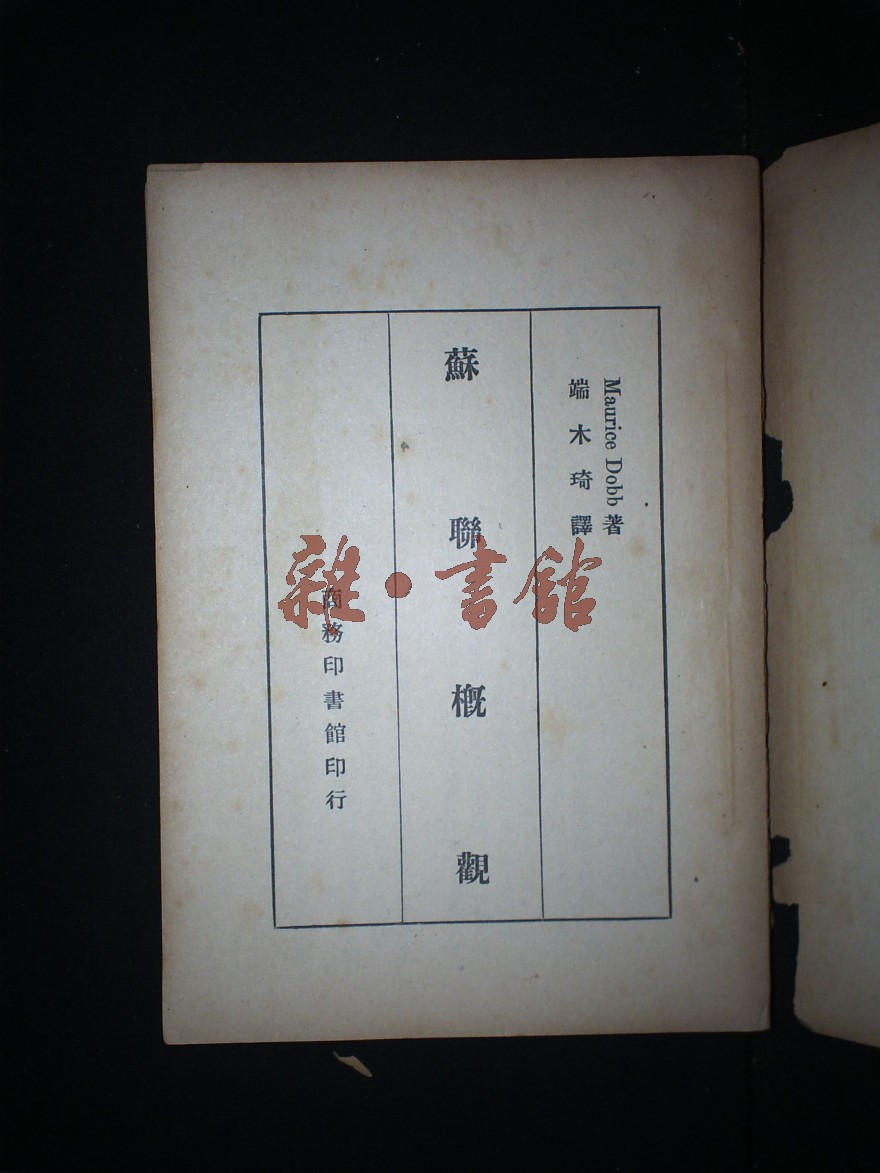 Maurice Dobb 著
端木琦譯
蘇聯概觀
商務印書館印行
雜·書館